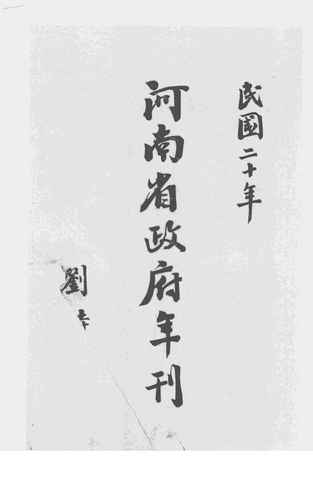 民國二十年
河南省政府年刊
劉